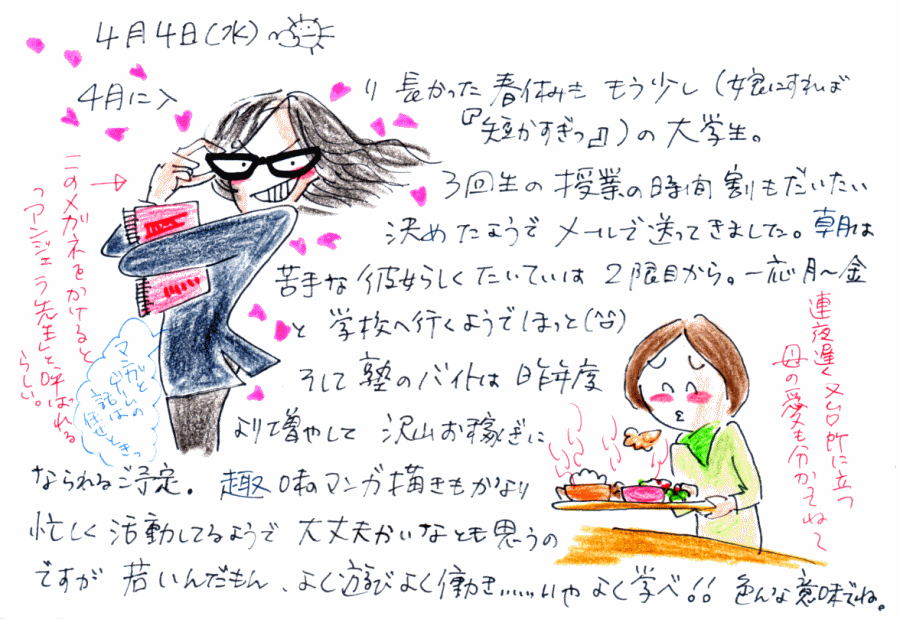 4月4日(水)
4月に入り 長かった 春休みも もう少し (娘にすれば
『短かすぎっ』) の 大学生。
3回生の 授業の時間割もだいたい
決めたようで メールで送ってきました。朝は
苦手な 彼女らしく たいていは 2限目から。一応 月〜金
と 学校へ行くようで ほっと(笑)
そして 塾のバイトは 昨年度
より増やして 沢山お稼ぎに
なられるご予定。 趣味のマンガ描きもかなり
忙しく 活動してるようで 大丈夫かいな とも 思うの
ですが 若いんだもん、よく遊びよく働き……いや よく学べ!! 色んな意味でね。
このメガネをかけると
「アンジェラ先生」と呼ばれる
らしい。
マンガと
ゲームの
話は
任せときっ
連夜遅く 又台所に立つ
母の愛も分かってねて